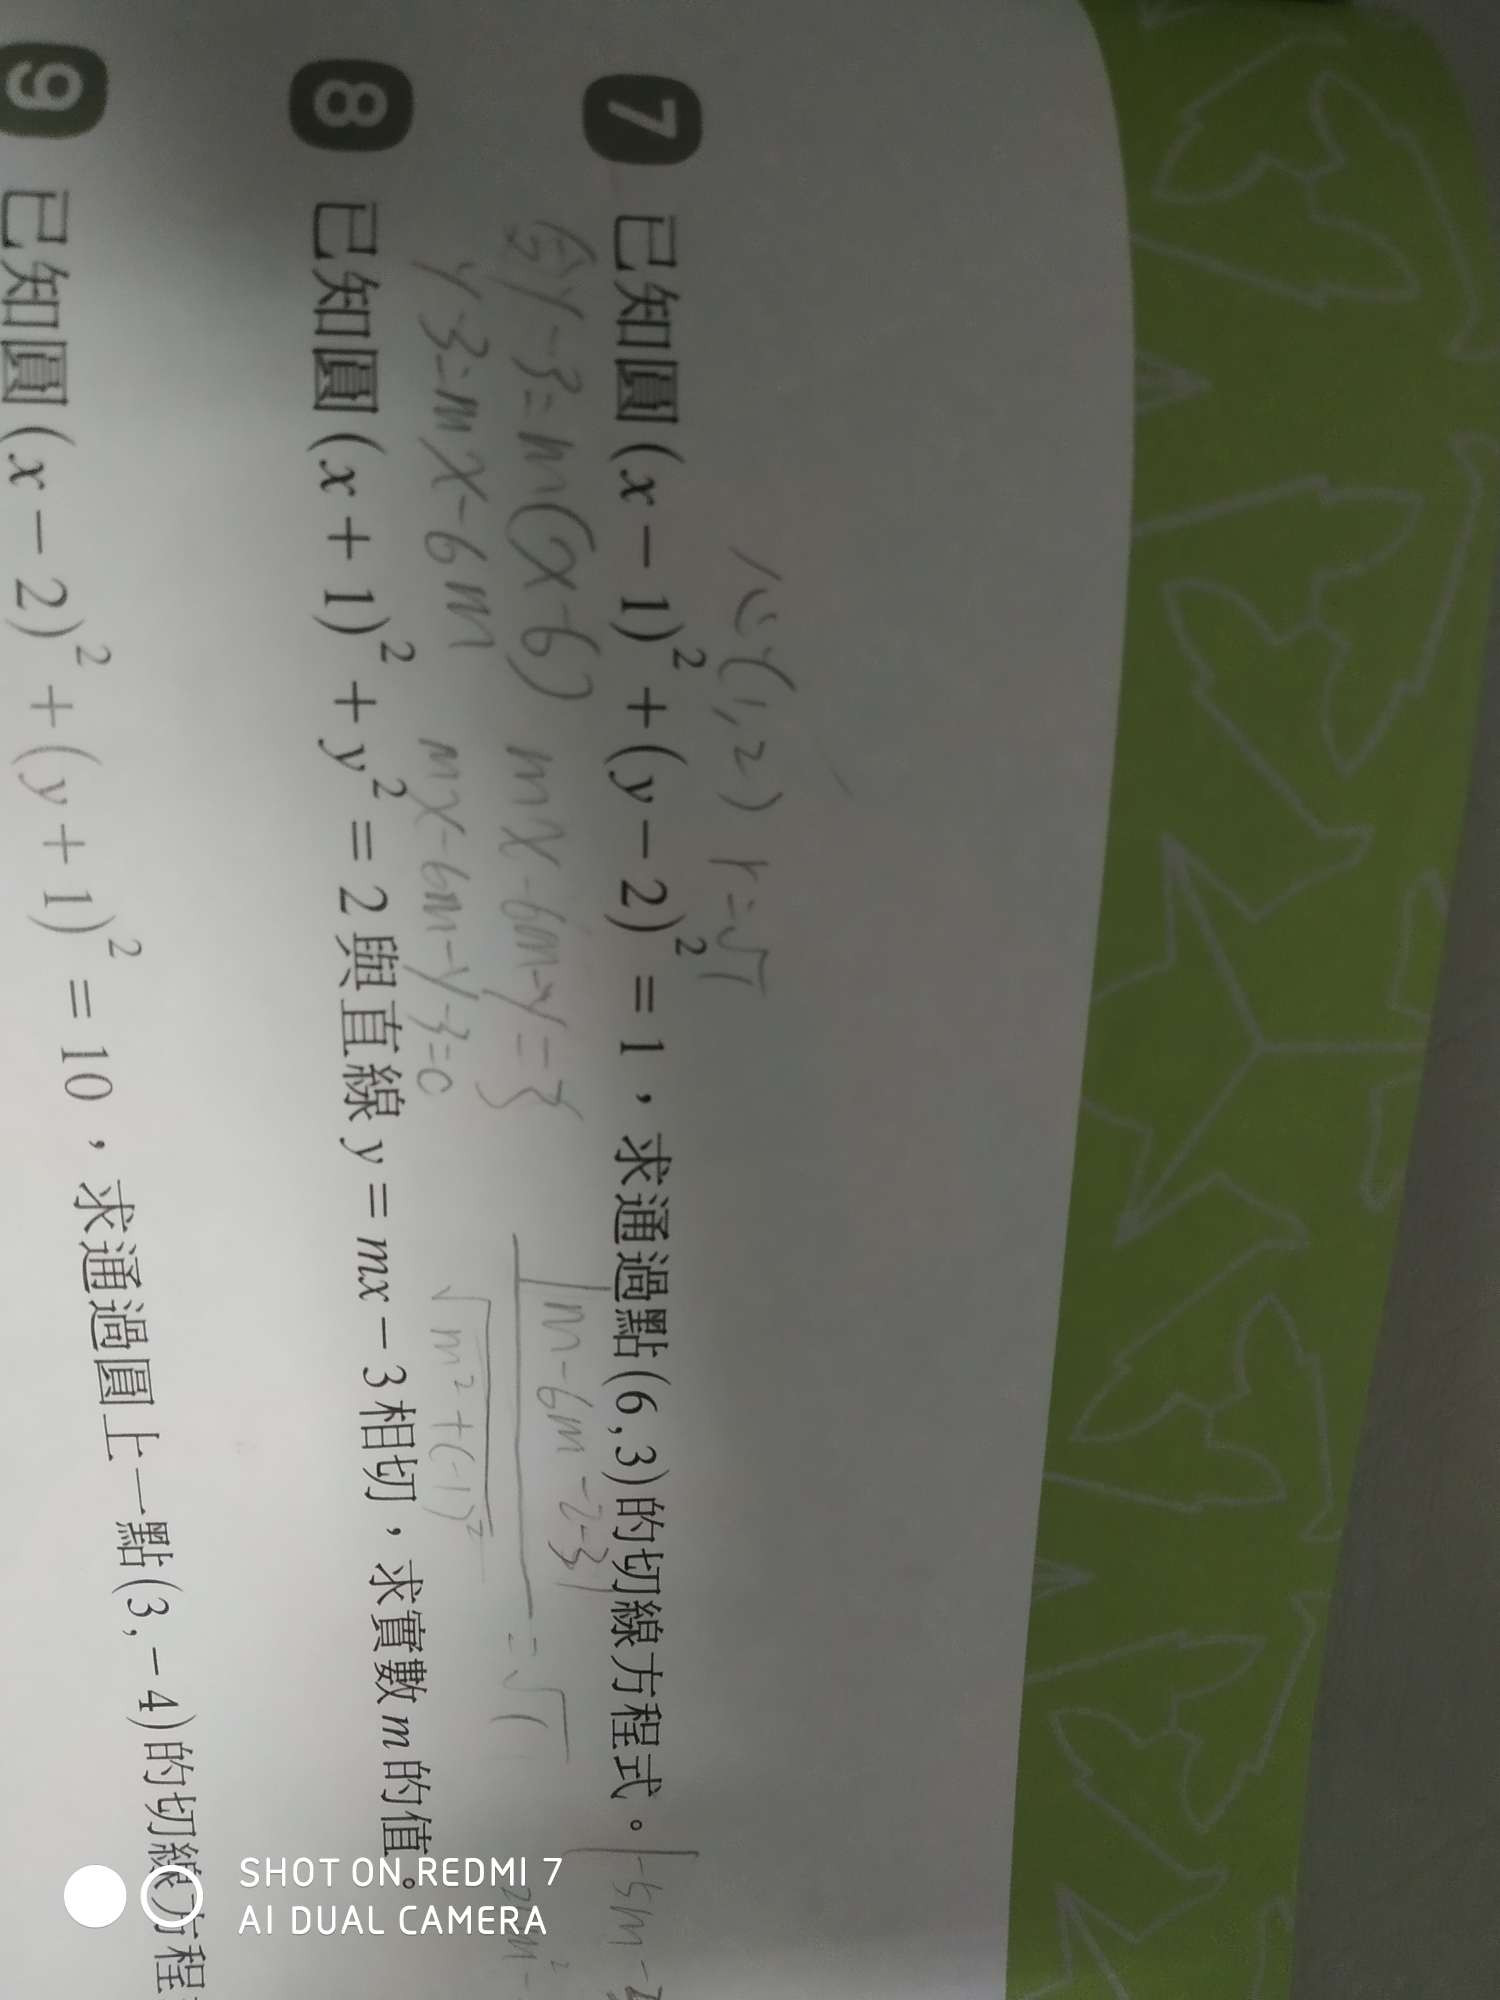 心(1,2) r=√1
7 已知圓(x-1)²+(y-2)²=1，求通過點(6,3)的切線方程式。
|m-6m-2-3|
y-3=m(x-6) mx-6m-y=3 =√1
y-3=mx-6m mx-6m-y-3=0 √m²+(-1)²
8 已知圓(x+1)²+y²=2與直線y=mx-3相切，求實數m的值。
9 已知圓(x-2)²+(y+1)²=10，求通過圓上一點(3,-4)的切線方程
SHOT ON REDMI 7
AI DUAL CAMERA